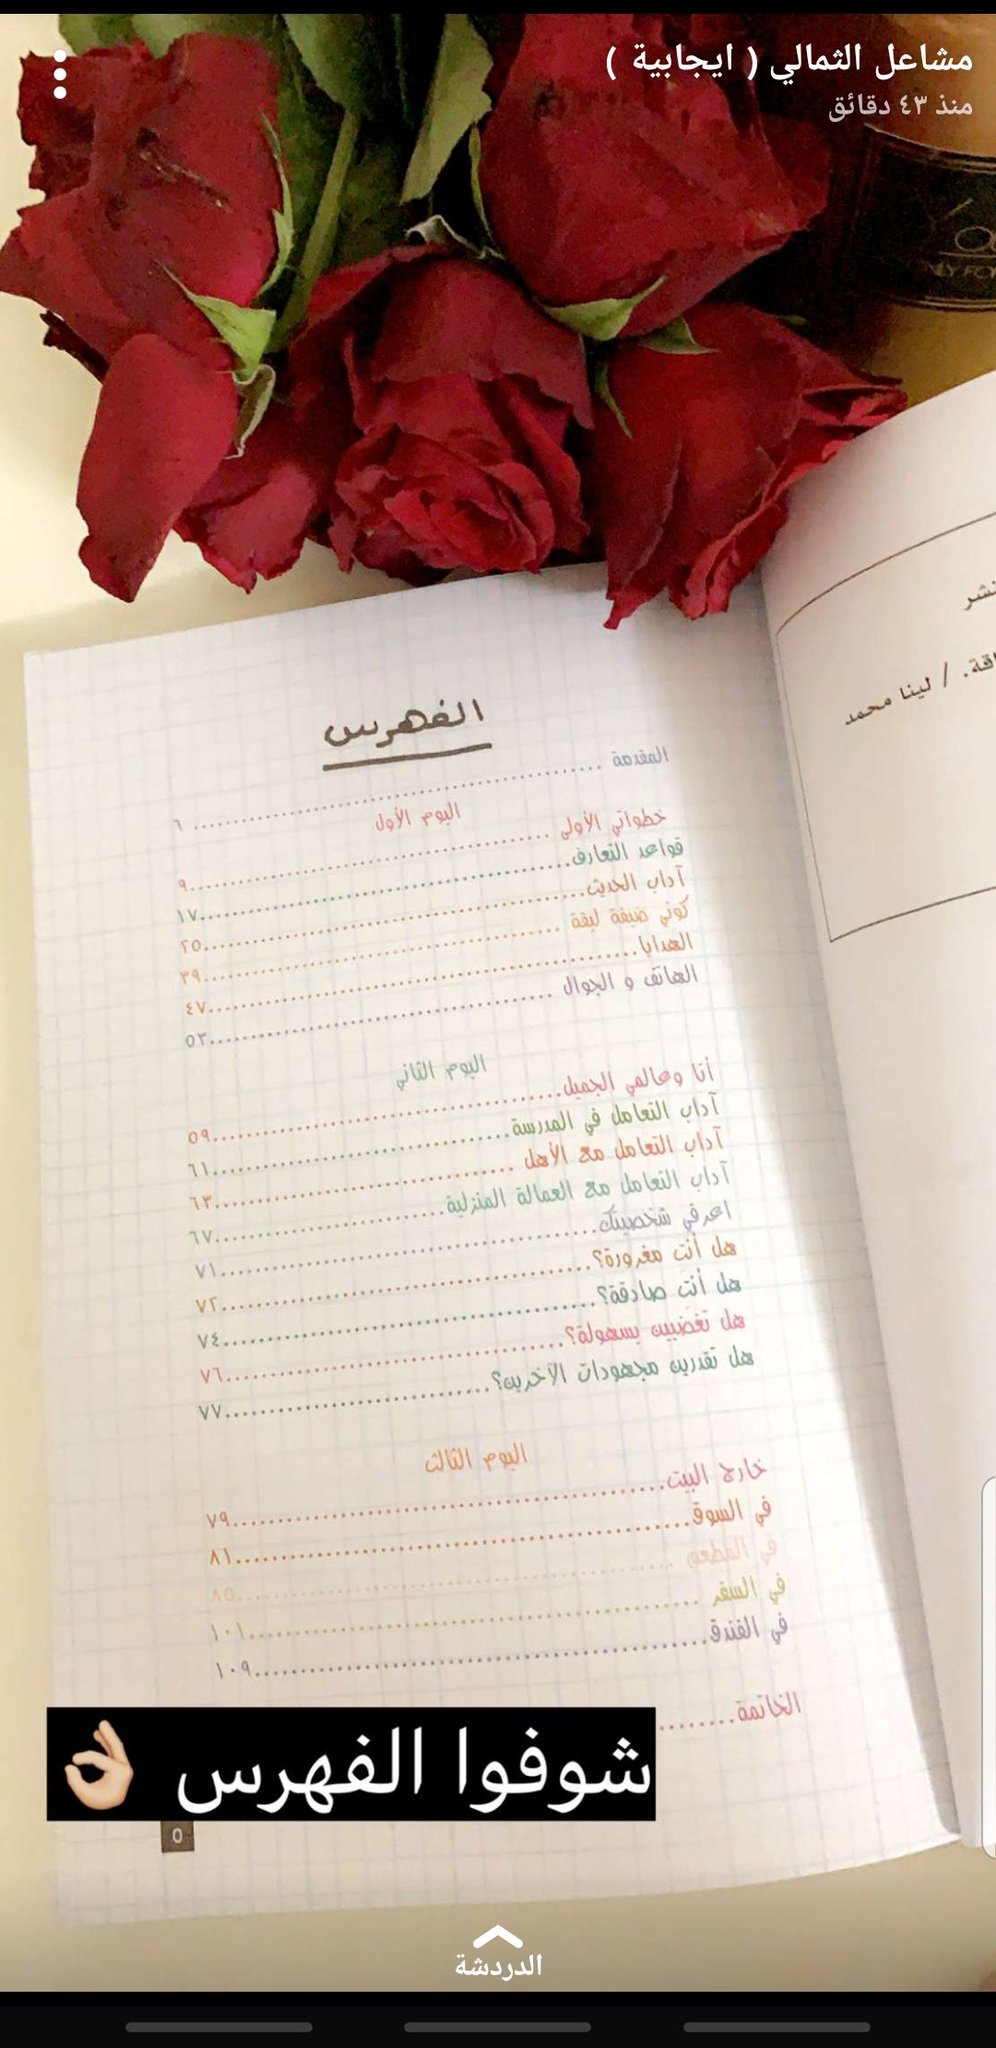 مشاعل الثمالي ( ايجابية )
منذ ٤٣ دقائق
نشر
لينا محمد /
الفهرس
المقدمة ........ ٦
اليوم الأول
خطواتي الأولى ........ ٩
قواعد التعارف ........ ١٧
آداب الحديث ........ ٢٥
كوني ضيفة لبقة ........ ٣٩
الهدايا ........ ٤٧
الهاتف و الجوال ........ ٥٣
اليوم الثاني
أنا وعالمي الجميل ........ ٥٩
آداب التعامل في المدرسة ........ ٦١
آداب التعامل مع الأهل ........ ٦٣
آداب التعامل مع العمالة المنزلية ........ ٦٧
اعرفي شخصيتك ........ ٧١
هل أنت مغرورة؟ ........ ٧٢
هل أنت صادقة؟ ........ ٧٤
هل تغضبين بسهولة؟ ........ ٧٦
هل تقدرين مجهودات الآخرين؟ ........ ٧٧
اليوم الثالث
خارج البيت ........ ٧٩
في السوق ........ ٨١
في المطعم ........ ٨٥
في السفر ........ ١٠١
في الفندق ........ ١٠٩
الخاتمة ........
شوفوا الفهرس 👌🏼
٥
الدردشة